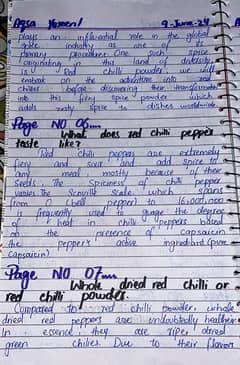 Aqsa Yameen!
9-June-24
plays an influential role in the global
spice industry as one of its
primary procedures. One such spice
originating in this land of diversity
is Red chilli powder. we will
embark on the adventure into red
chilies before discovering their transformation
into this fiery spice powder which
adds zesty spice to dishes worldwide.
Page NO 06....
What does red chilli pepper
taste like?
Red chili peppers are extremely
fiery and give and add spice to
any meal mostly because of their
Seeds. The Spiciness of chili pepper
varies. The Scoville scale which spans
from 0 (bell pepper) to 16,000,000
is frequently used to gauge the degree
of heat in chili peppers based
on the presence of capsaicin
the pepper's active ingredient (pure
capsaicin)
Page NO 07....
Whole dried red chilli or
red chilli powder.
Compared to red chilli powder, whole
dried red peppers are undoubtedly healthier
In essence, they are ripe, dried
green chilies. Due to their flavor